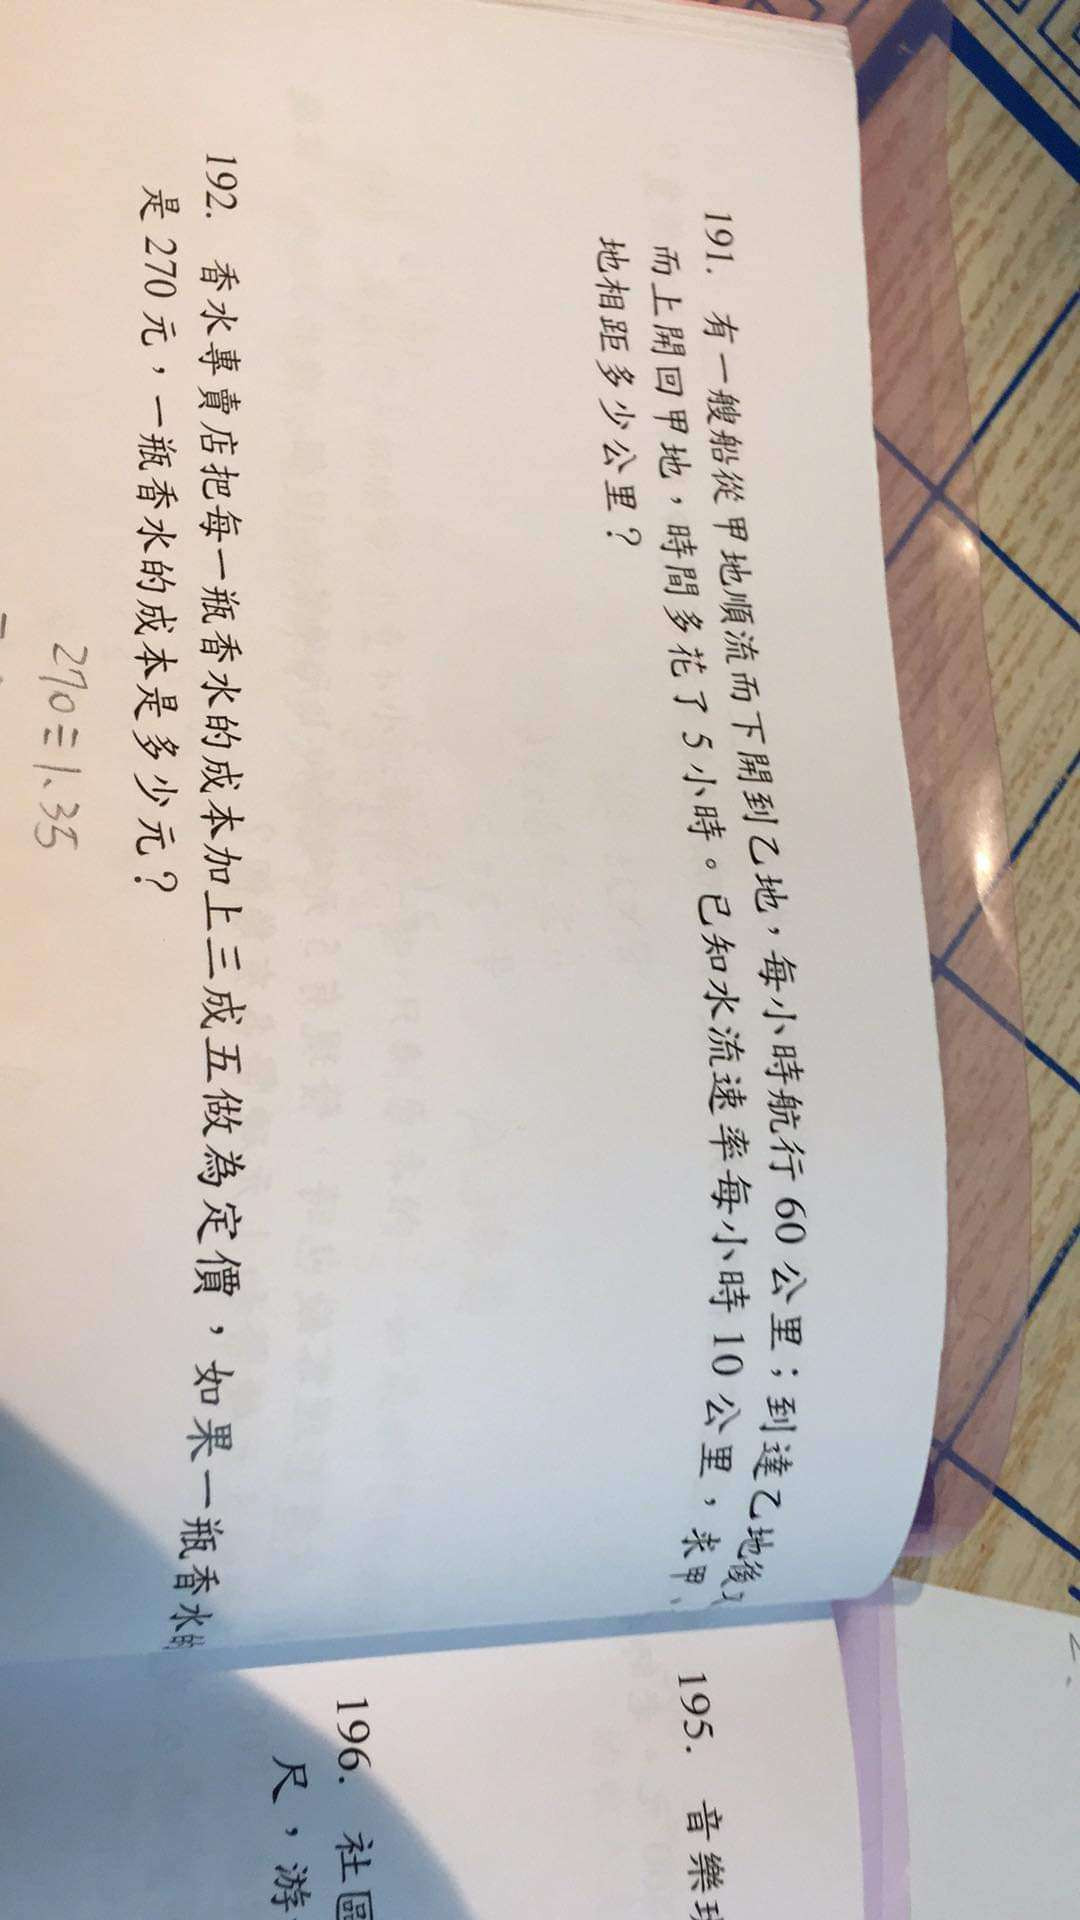 191. 有一艘船從甲地順流而下開到乙地，每小時航行 60 公里；到達乙地後
而上開回甲地，時間多花了 5 小時。已知水流速率每小時 10 公里，求甲、
地相距多少公里？
192. 香水專賣店把每一瓶香水的成本加上三成五做為定價，如果一瓶香水的
是 270 元，一瓶香水的成本是多少元？
270÷1.35
195. 音樂班
196. 社區
尺，游